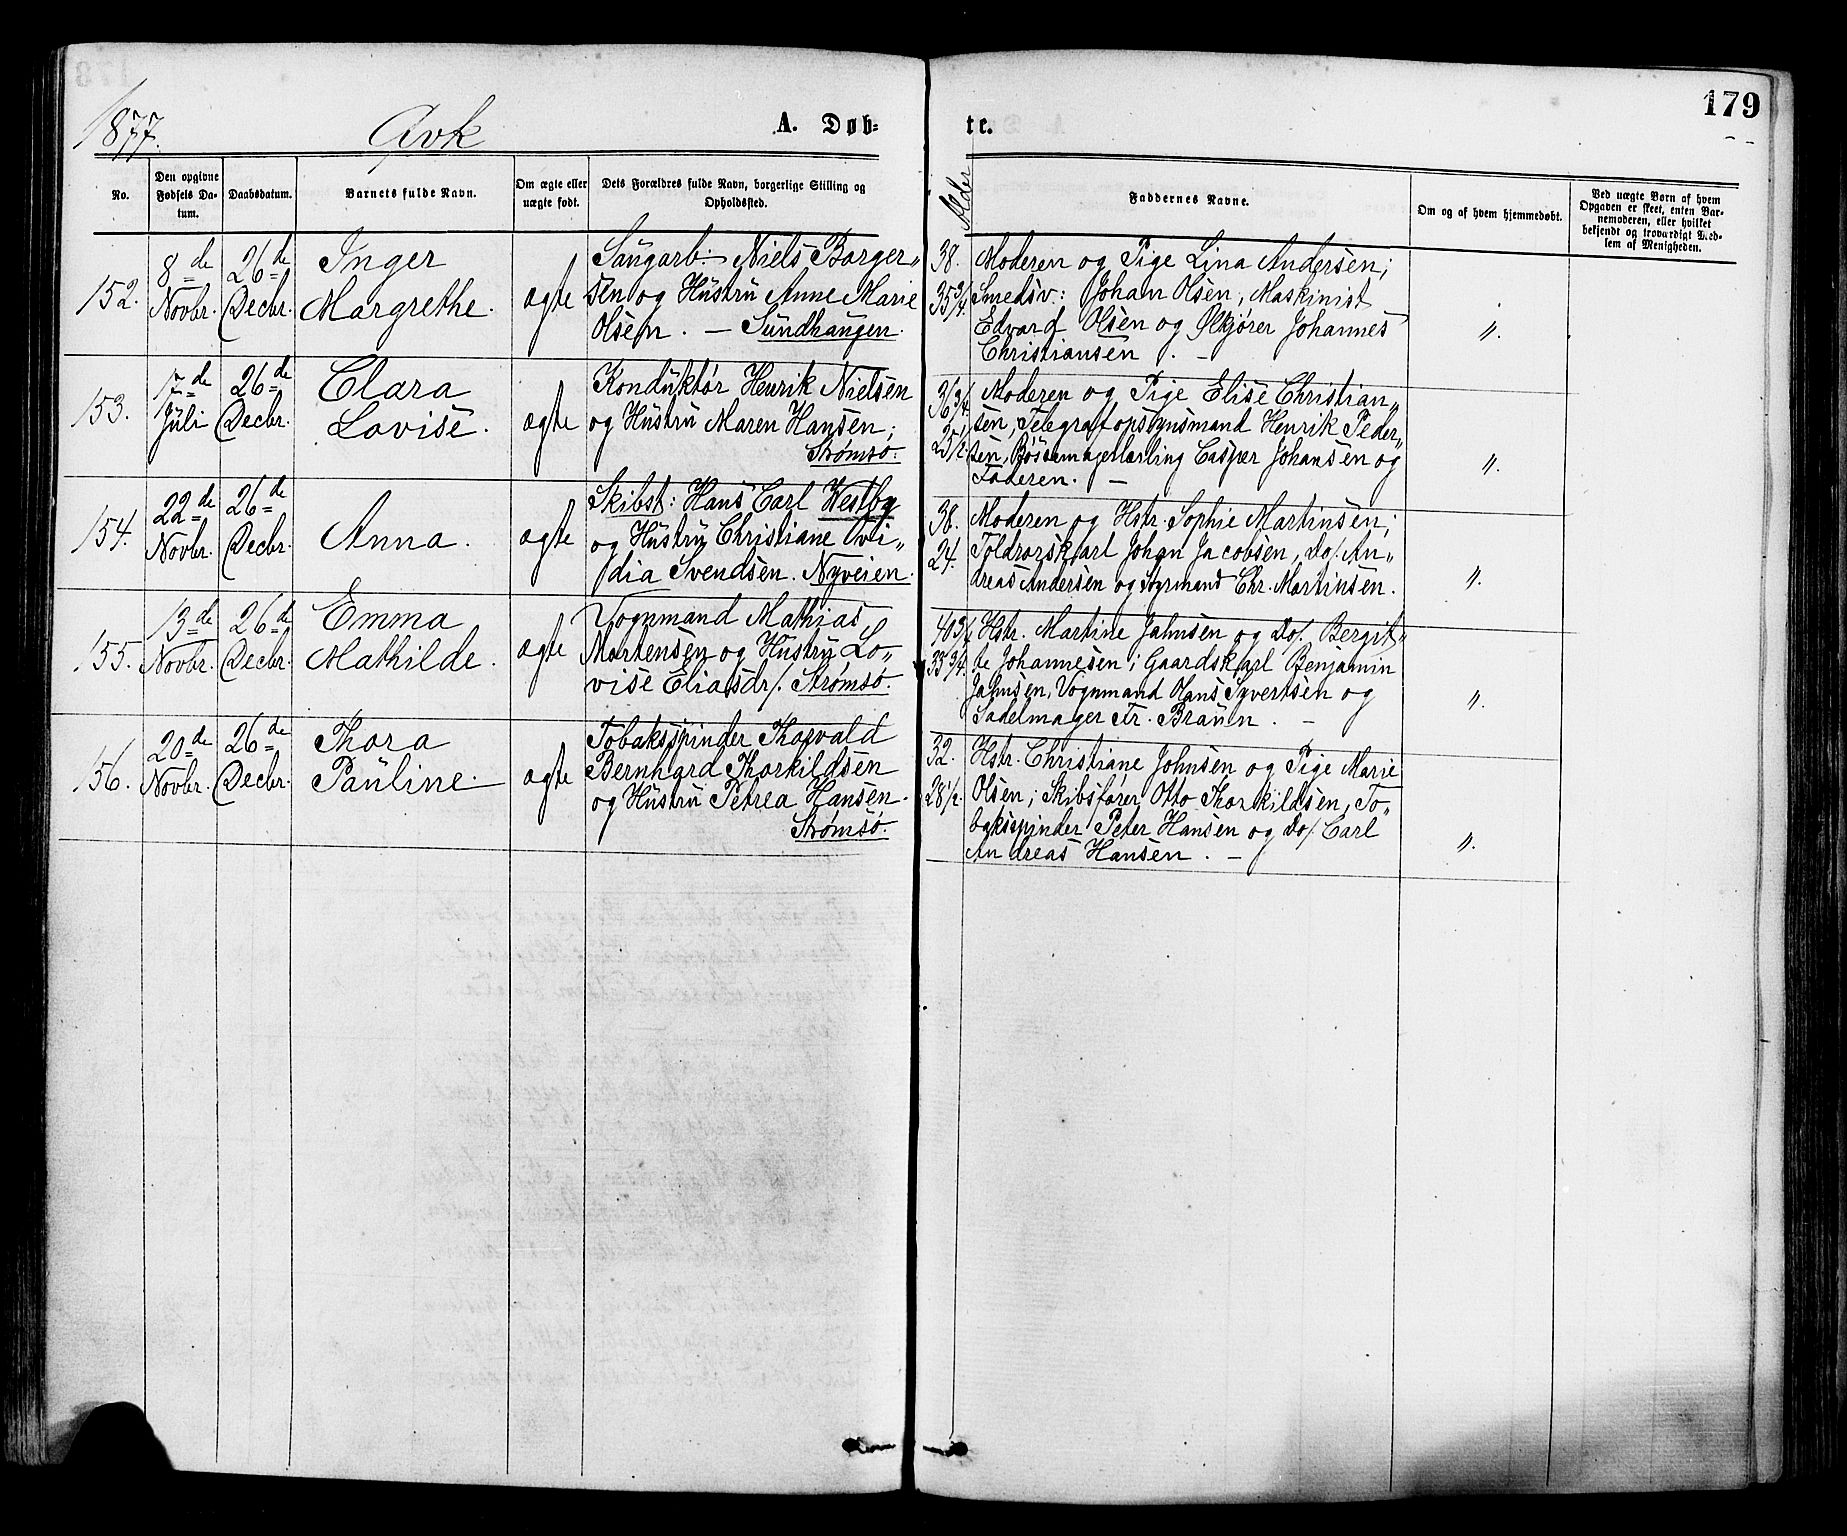 1877.
Qvk
A. Døb-
te.
179
No.
Den opgivne Fødsels Da-tum.
Daabsdatum.
Barnets fulde Navn.
Om ægte eller uægte født.
Dets Forældres fulde Navn, borgerlige Stilling og Opholdssted.
Alder
Faddernes Navne.
Om og af hvem hjemmedøbt.
Ved uægte Børn af hvem Opgaven er skeet, enten Bar-nemoderen, eller hvilket bekjendt og troværdigt Med-lem af Menigheden.
152.
8de
Novbr.
26de
Decbr.
Inger
Margrethe.
ægte
Saugarb: Niels Borger„
sen og Hustru Anne Marie
Olsen. — Sundhaugen.
38.
35 3/4.
Moderen og Pige Lina Andersen;
Smedsv: Johan Olsen, Maskinist
Edvard Olsen og Ølkjører Johannes
Christiansen. —
〃.
153.
17de
Juli
26de
Decbr.
Clara
Lovise.
ægte
Konduktør Henrik Nielsen
og Hustru Maren Hansen;
Strømsø.
36 3/4.
25 1/2.
Moderen og Pige Elise Christian„
sen, Telegrafopsynsmand Henrik Peder„
sen, Bøssemagerlærling Casper Johansen og
Faderen. —
〃.
154.
22de
Novbr.
26de
Decbr.
Anna.
ægte
Skibst: Hans Carl Westby
og Hustru Christiane Ovi„
dia Svendsen. Nyveien.
38.
24.
Moderen og Hstr. Sophie Martinsen;
Toldrorskarl Johan Jacobsen, Do/. An„
dreas Andersen og Styrmand Chr. Martinsen.
〃.
155.
13de
Novbr.
26de
Decbr.
Emma
Mathilde.
ægte
Vognmand Mathias
Mortensen og Hustru Lo„
vise Eliasdr/. Strømsø.
40 3/4
33 3/4.
Hstr. Martine Jahnsen og Do/. Bergit„
te Johannesen; Gaardskarl Benjamin
Jahnsen, Vognmand Hans Syvertsen og
Sadelmager Fr. Braun. —
〃.
156.
20de
Novbr.
26de
Decbr.
Thora
Pauline.
ægte
Tobaksspinder Thorvald
Bernhard Thorkildsen
og Hustru Petrea Hansen.
Strømsø.
32.
28 1/2.
Hstr. Christiane Johnsen og Pige Marie
Olsen; Skibsfører Otto Thorkildsen, To„
baksspinder Peter Hansen og Do/. Carl
Andreas Hansen. —
〃.